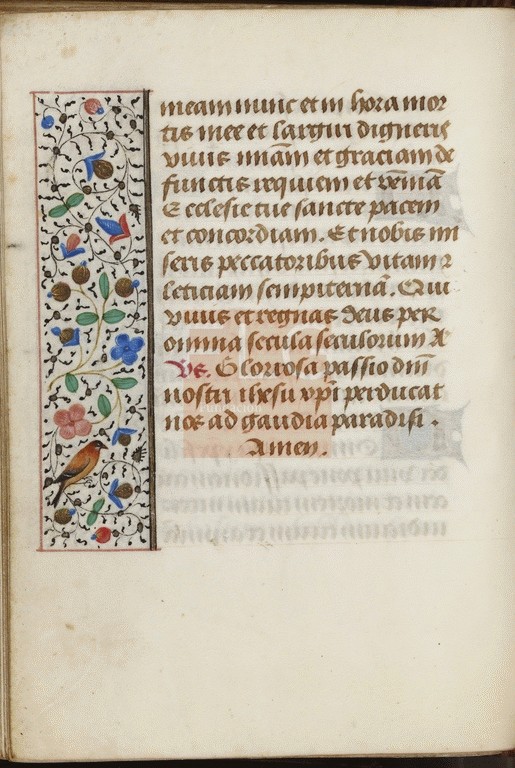 meam nunc et in hora mor
tis mee et largiri digneris
viuis miām et graciam de
functis requiem et veniā
Ecclesie tue sancte pacem
et concordiam. Et nobis mi
seris peccatoribus vitam ꝛ
leticiam sempiternā. Qui
viuis et regnas deus per
omnia secula seculorum A
Vs. Gloriosa passio dnī
nostri ihesu xpī perducat
nos ad gaudia paradisi.
Amen.